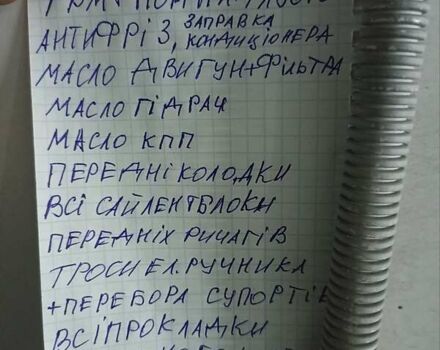 АНТИФРІЗ, ЗАПРАВКА КОНДИЦІОНЕРА
МАСЛО ДВИГУН+ФІЛЬТРА
МАСЛО ГІДРАЧ
МАСЛО КПП
ПЕРЕДНІ КОЛОДКИ
ВСІ САЙЛЕНТБЛОКИ
ПЕРЕДНІХ РИЧАГІВ
ТРОСИ ЕЛ. РУЧНИКА
+ПЕРЕБОРА СУПОРТІВ
ВСІ ПРОКЛАДКИ